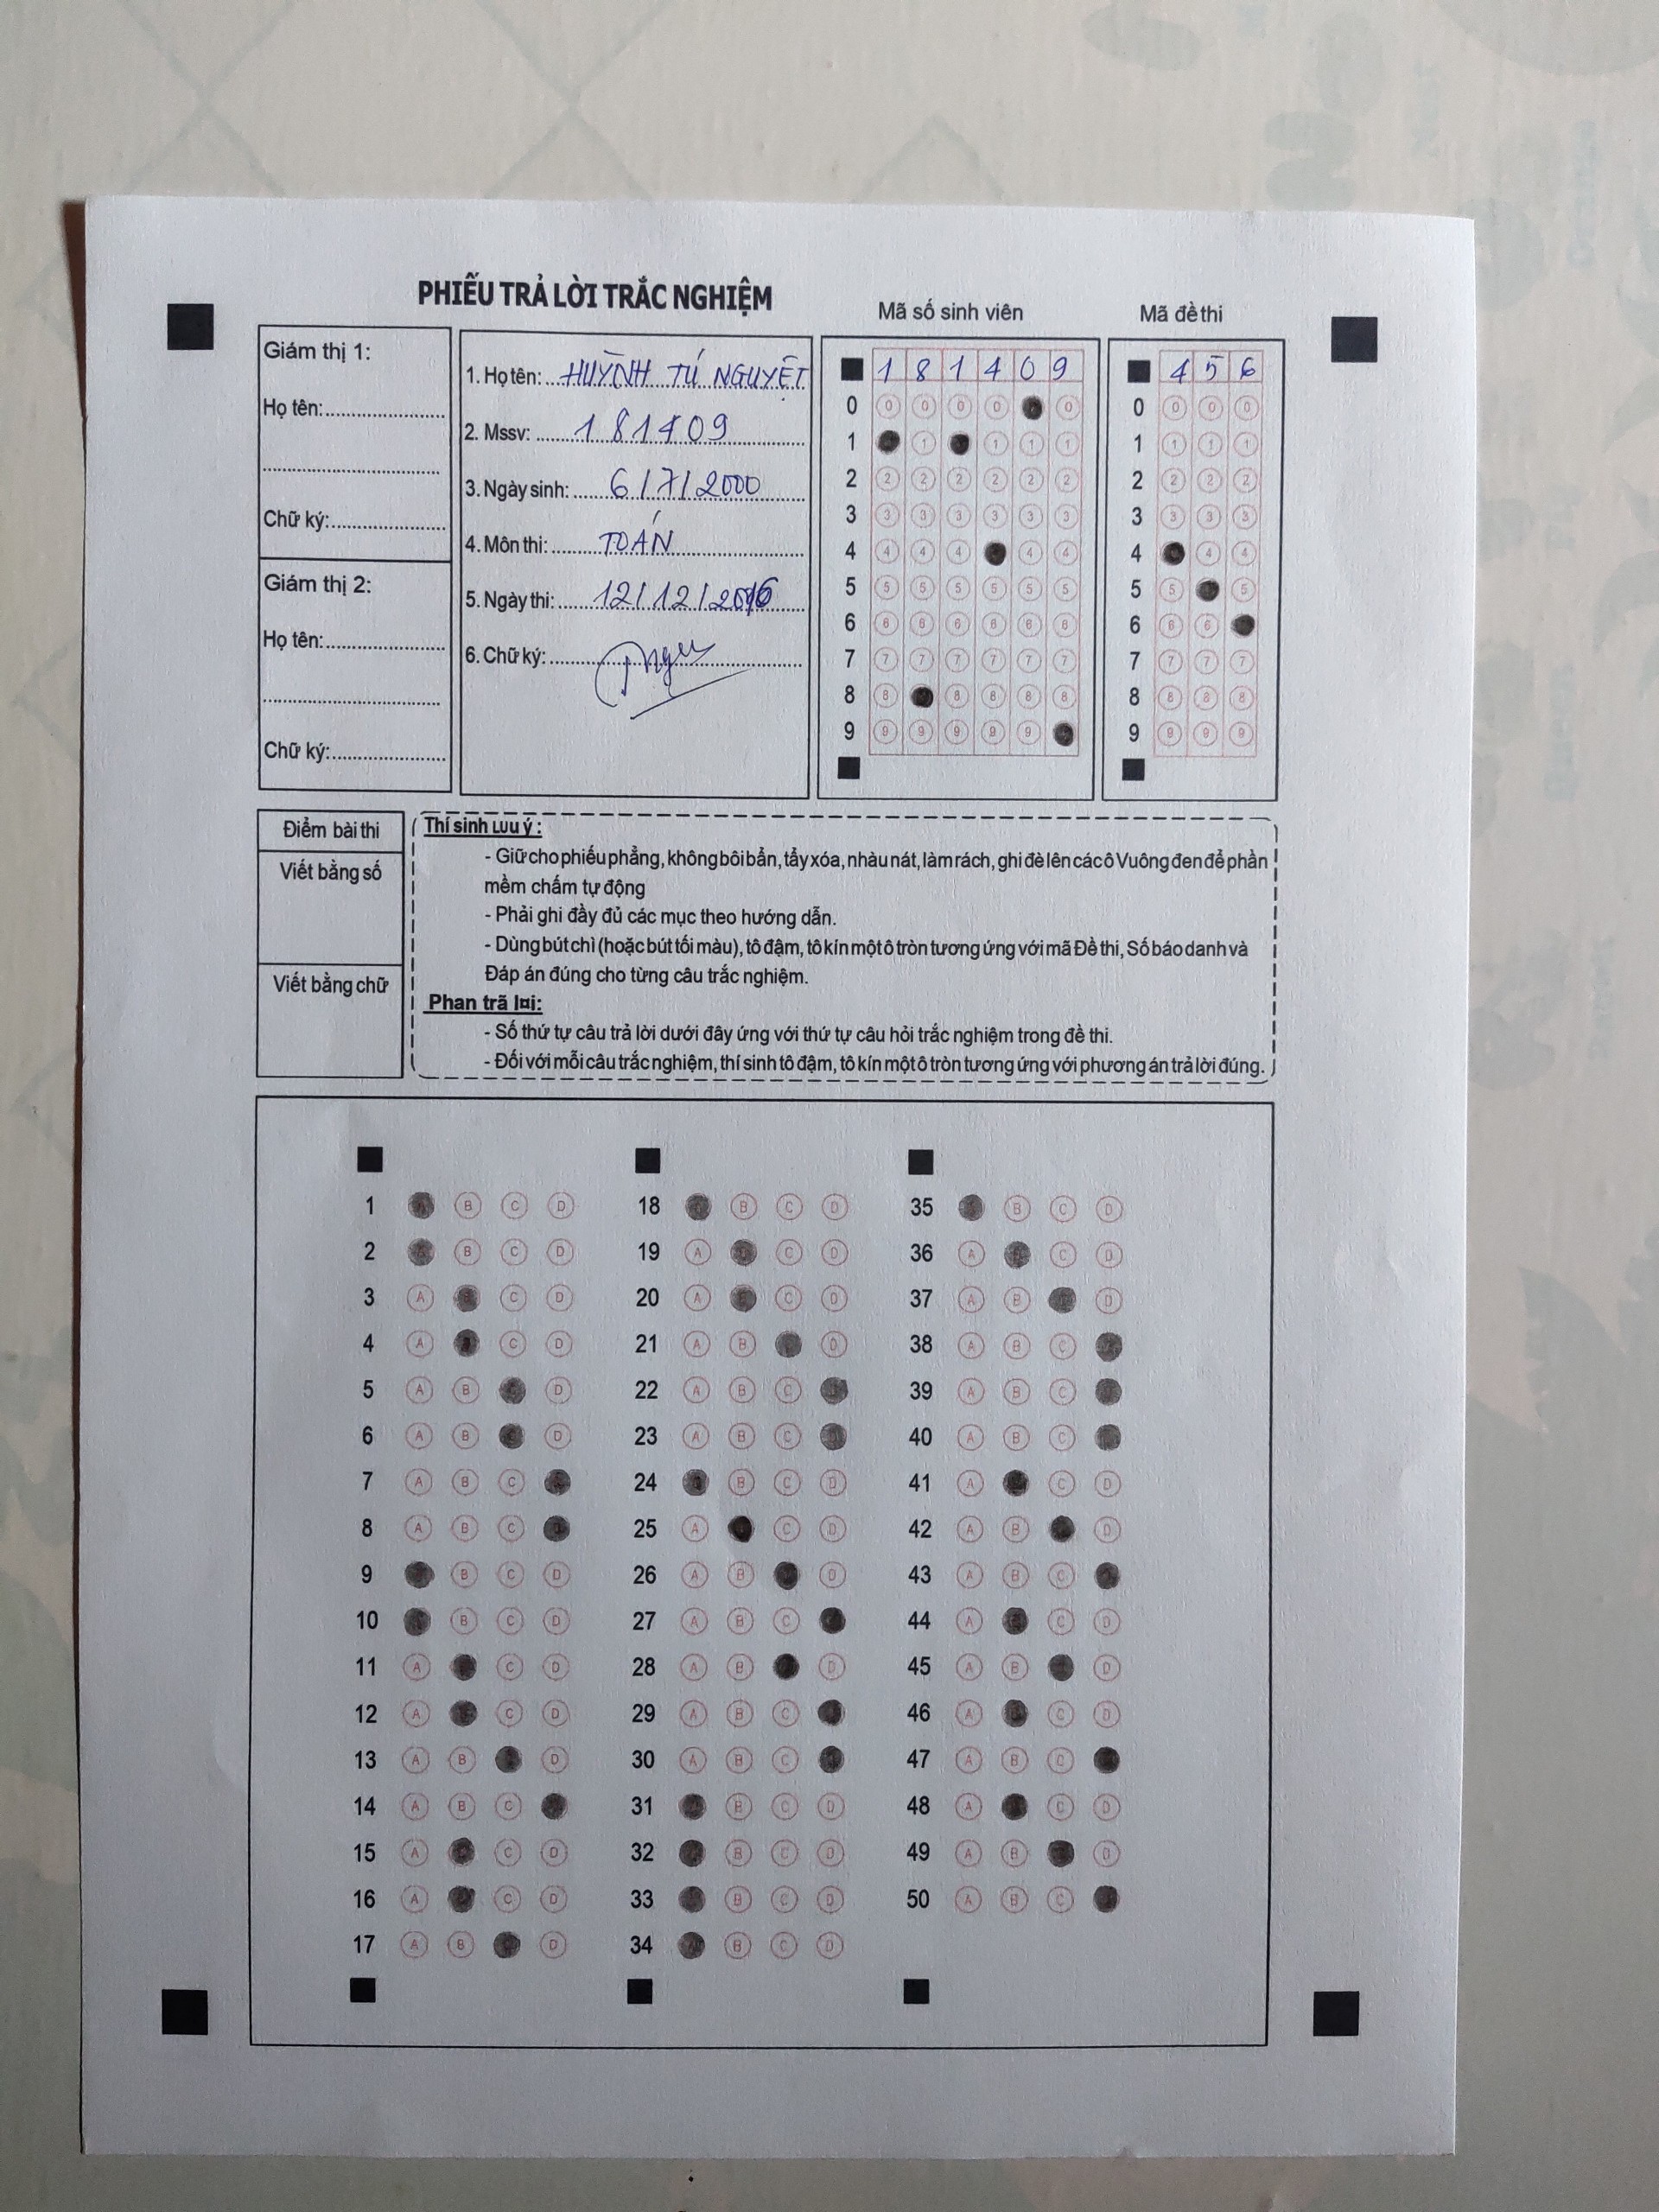 PHIẾU TRẢ LỜI TRẮC NGHIỆM
Giám thị 1:
Họ tên:
Chữ ký:
Giám thị 2:
Họ tên:
Chữ ký:
1. Họ tên: HUỲNH TÚ NGUYỆT
2. Mssv: 181409
3. Ngày sinh: 6/7/2000
4. Môn thi: TOÁN
5. Ngày thi: 12/12/2016
6. Chữ ký:
Mã số sinh viên
1 8 1 4 0 9
0 0 0 0 0
1 1 1 1 1
2 2 2 2 2 2 2
3 3 3 3 3 3 3
4 4 4 4 4 4
5 5 5 5 5 5 5
6 6 6 6 6 6 6
7 7 7 7 7 7 7
8 8 8 8 8 8
9 9 9 9 9 9
Mã đề thi
4 5 6
0 0 0 0
1 1 1 1
2 2 2 2
3 3 3 3
4 4 4
5 5 5
6 6 6
7 7 7 7
8 8 8 8
9 9 9 9
Điểm bài thi
Viết bằng số
Viết bằng chữ
Thí sinh Lưu ý :
- Giữ cho phiếu phẳng, không bôi bẩn, tẩy xóa, nhàu nát, làm rách, ghi đè lên các ô Vuông đen để phần
mềm chấm tự động
- Phải ghi đầy đủ các mục theo hướng dẫn.
- Dùng bút chì (hoặc bút tối màu), tô đậm, tô kín một ô tròn tương ứng với mã Đề thi, Số báo danh và
Đáp án đúng cho từng câu trắc nghiệm.
Phan trã l¤i:
- Số thứ tự câu trả lời dưới đây ứng với thứ tự câu hỏi trắc nghiệm trong đề thi.
- Đối với mỗi câu trắc nghiệm, thí sinh tô đậm, tô kín một ô tròn tương ứng với phương án trả lời đúng.
1 B C D
2 B C D
3 A C D
4 A C D
5 A B D
6 A B D
7 A B C
8 A B C
9 B C D
10 B C D
11 A C D
12 A C D
13 A B D
14 A B C
15 A C D
16 A C D
17 A B D
18 B C D
19 A C D
20 A C D
21 A B D
22 A B C
23 A B C
24 B C D
25 A C D
26 A B D
27 A B C
28 A B D
29 A B C
30 A B C
31 B C D
32 B C D
33 B C D
34 B C D
35 B C D
36 A C D
37 A B D
38 A B C
39 A B C
40 A B C
41 A C D
42 A B D
43 A B C
44 A C D
45 A B D
46 A C D
47 A B C
48 A C D
49 A B D
50 A B C